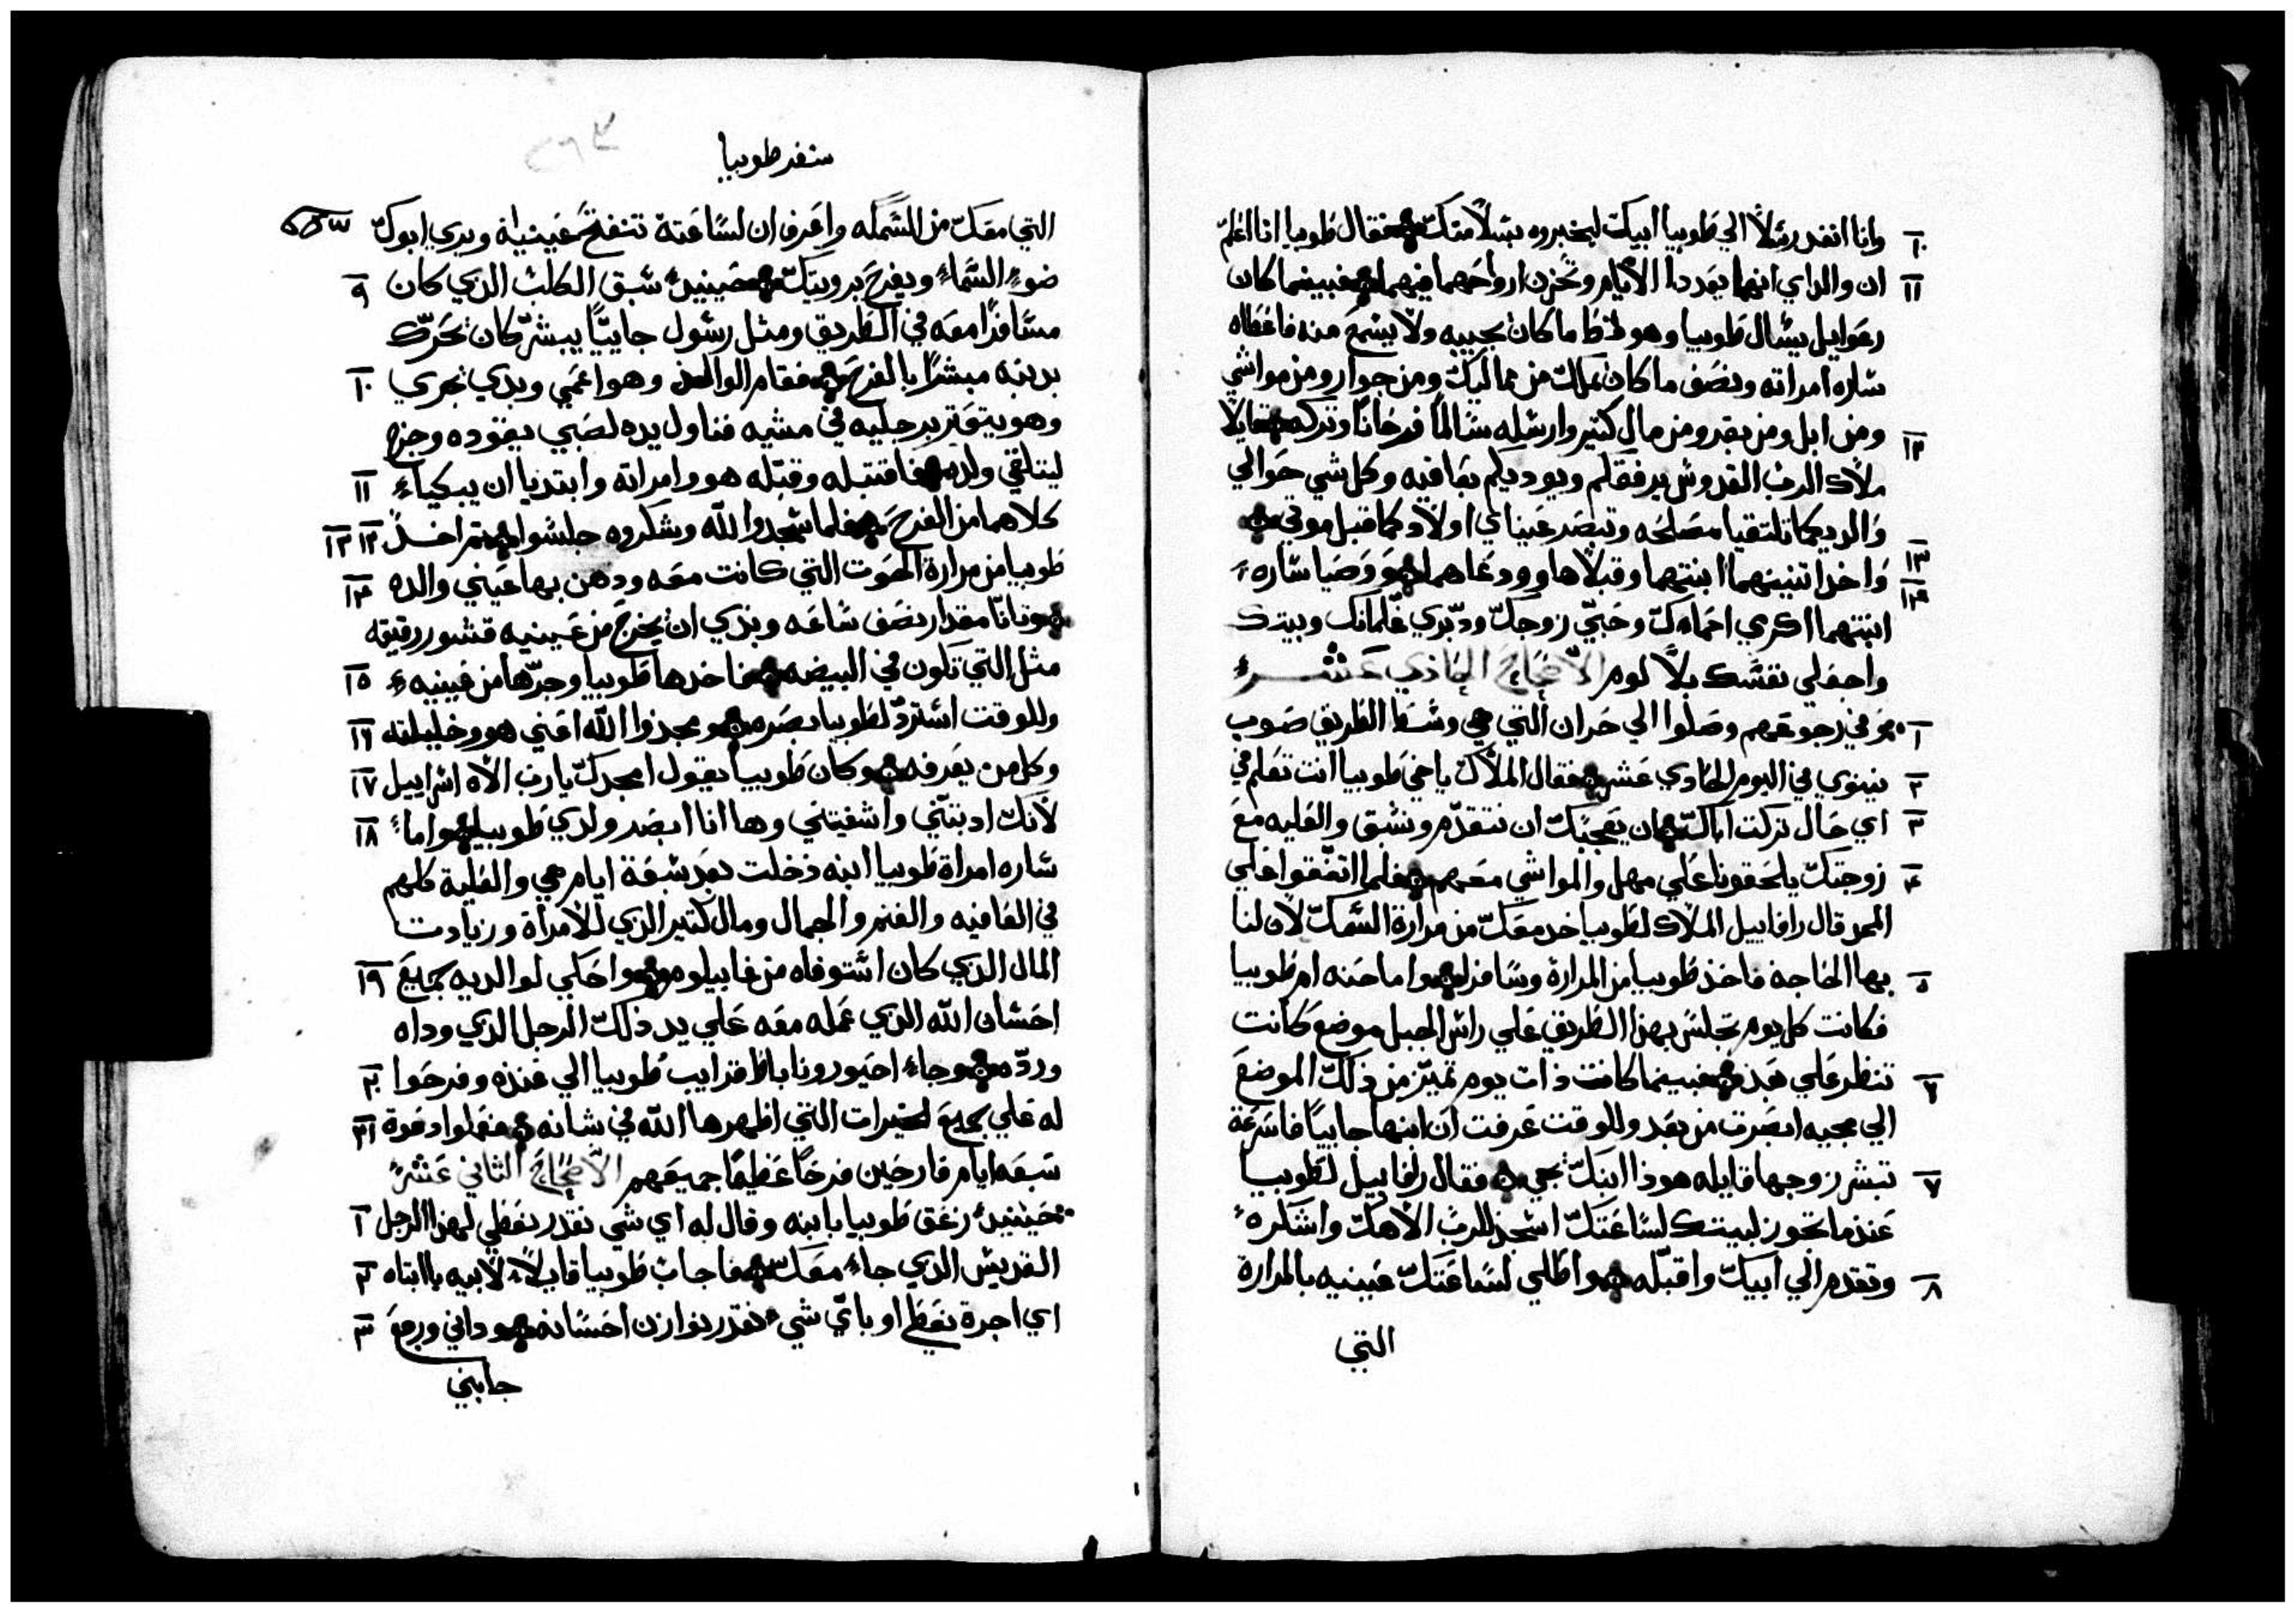 وانا انفد رسلاً الي طوبيا ابيك ليخبروه بسلامتك فقال طوبيا انا اعلم ١٠
ان والداي انهما يعددا الأيام وتحزن ارواحهما فيهما فبينما كان ١١
رعوايل يسال طوبيا وهو قط ما كان يجيبه ولا يسمع منه فاعطاه
ساره امراته ونصف ما كان يملك من مماليك ومن جوار ومن مواشي
ومن ابل ومن بقر ومن مال كتير وارسله سالماً فرحاناً وتركه قايلا ١٢
ملاك الرب القدوس يرفقكم ويوديكم بعافيه وكل شي حوالي
والديكما تلتقيا مصلحه وتبصر عيناي اولادكما قبل موتي
واخدا تنينهما ابنتهما وقبلاها وودعاهما ووصيا ساره ١٣ ١٤
ابنتهما اكرمي احماءك وحبي زوجك ودبري غلمانك وبيتك
واجعلي نفسك بلا لوم الأصحاح الحادي عشر
وفي رجوعهم وصلوا الي حران التي هي وسط الطريق صوب ١
نينوي في اليوم الحادي عشر فقال الملاك ياخي طوبيا انت تعلم في ٢
اي حال تركت اباك ان يعجبك ان نتقدم ونسبق والعليه مع ٣
زوجتك يلحقونا علي مهل والمواشي معهم فلما اتفقوا علي ٤
المر قال رافاييل الملاك لطوبيا خد معك من مرارة السمك لان لنا
بها الحاجه فاخذ طوبيا من المرارة وسافر واما حنه ام طوبيا ٥
فكانت كل يوم تجلس بهذا الطريق علي راس الجبل موضع كانت
تنظر علي بعد فبينما كانت ذات يوم تميز من ذلك الموضع ٦
الي مجيه ابصرت من بعد وللوقت عرفت ان ابنها جايياً فاسرعة
تبشر زوجها قايله هوذا ابنك يجي فقال رافاييل لطوبيا ٧
عندما تجوز لبيتك لساعتك اسجد للرب الاهك واشكره
وتقدم الي ابيك واقبله واطلي لساعتك عينيه بالمرارة ٨
التي
سفر طوبيا
التي معك من السمكه واعرف ان لساعته تنفتح عينيه ويري ابوك
ضوء السماء ويفرح برويتك حينيد سبق الكلب الذي كان ٩
مسافرا معه في الطريق ومثل رسول جايياً يبشر كان يحرك
بدنبه مبشرا بالفرح فقام الوالد وهو اعمي وبدي يجري ١٠
وهو يتوتر برجليه في مشيه فناول يده لصبي يقوده وخرج
ليتلقي ولده فاقتبله وقبله هو وامراته وابتديا ان يبكياء ١١
كلاهما من الفرح فلما سجدوا لله وشكروه جلسوا تم اخذ ١٢ ١٣
طوبيا من مرارة الحوت التي كانت معه ودهن بها عيني والده ١٤
وتانا مقدار نصف ساعه وبدي ان يخرج من عينيه قشور رقيقه
مثل التي تكون في البيضه فاخدها طوبيا وجرها من عينيه ١٥
وللوقت استرد لطوبيا بصره ومجدوا الله اعني هو وخليلته ١٦
وكل من يعرفه وكان طوبيا يقول امجدك يارب الاه اسراييل ١٧
لانك ادبتني واشفيتني وها انا ابصر ولدي طوبيا واما ١٨
ساره امراة طوبيا ابنه دخلت بعد سبعة ايام هي والعلية كلهم
في العافيه والغنم والجمال ومال كتير الذي للامراة وزيادت
المال الذي كان استوفاه من غابيلوه واحكي لوالديه بجميع ١٩
احسان الله الذي عمله معه علي يد ذلك الرجل الذي وداه
ورده وجاء احيور ونابات قرايب طوبيا الي عنده وفرحوا ٢٠
له علي جميع الخيرات التي اظهرها الله في شانه فعملوا دعوة ٢١
سبعه ايام فارحين فرحاً عظيما جميعهم الأصحاح الثاني عشر
حينيد زعق طوبيا بابنه وقال له اي شي نقدر نعطي لهذا الرجل ١
القديس الذي جاء معك فاجاب طوبيا قايلاً لابيه يا ابتاه ٢
اي اجرة نعطي او باي شي نقدر نوازن احسانه وداني ورجع ٣
جابني